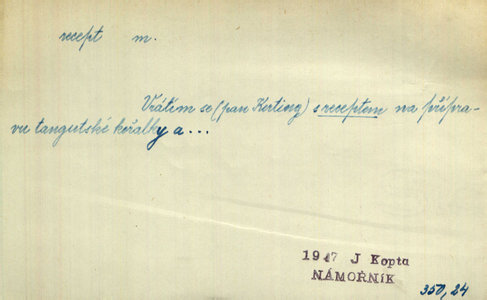 recept m.
Vrátím se (pan Kerting) s receptem na přípra-
vu tangutské kořalky a...
1947 J Kopta
NÁMOŘNÍK
350, 24